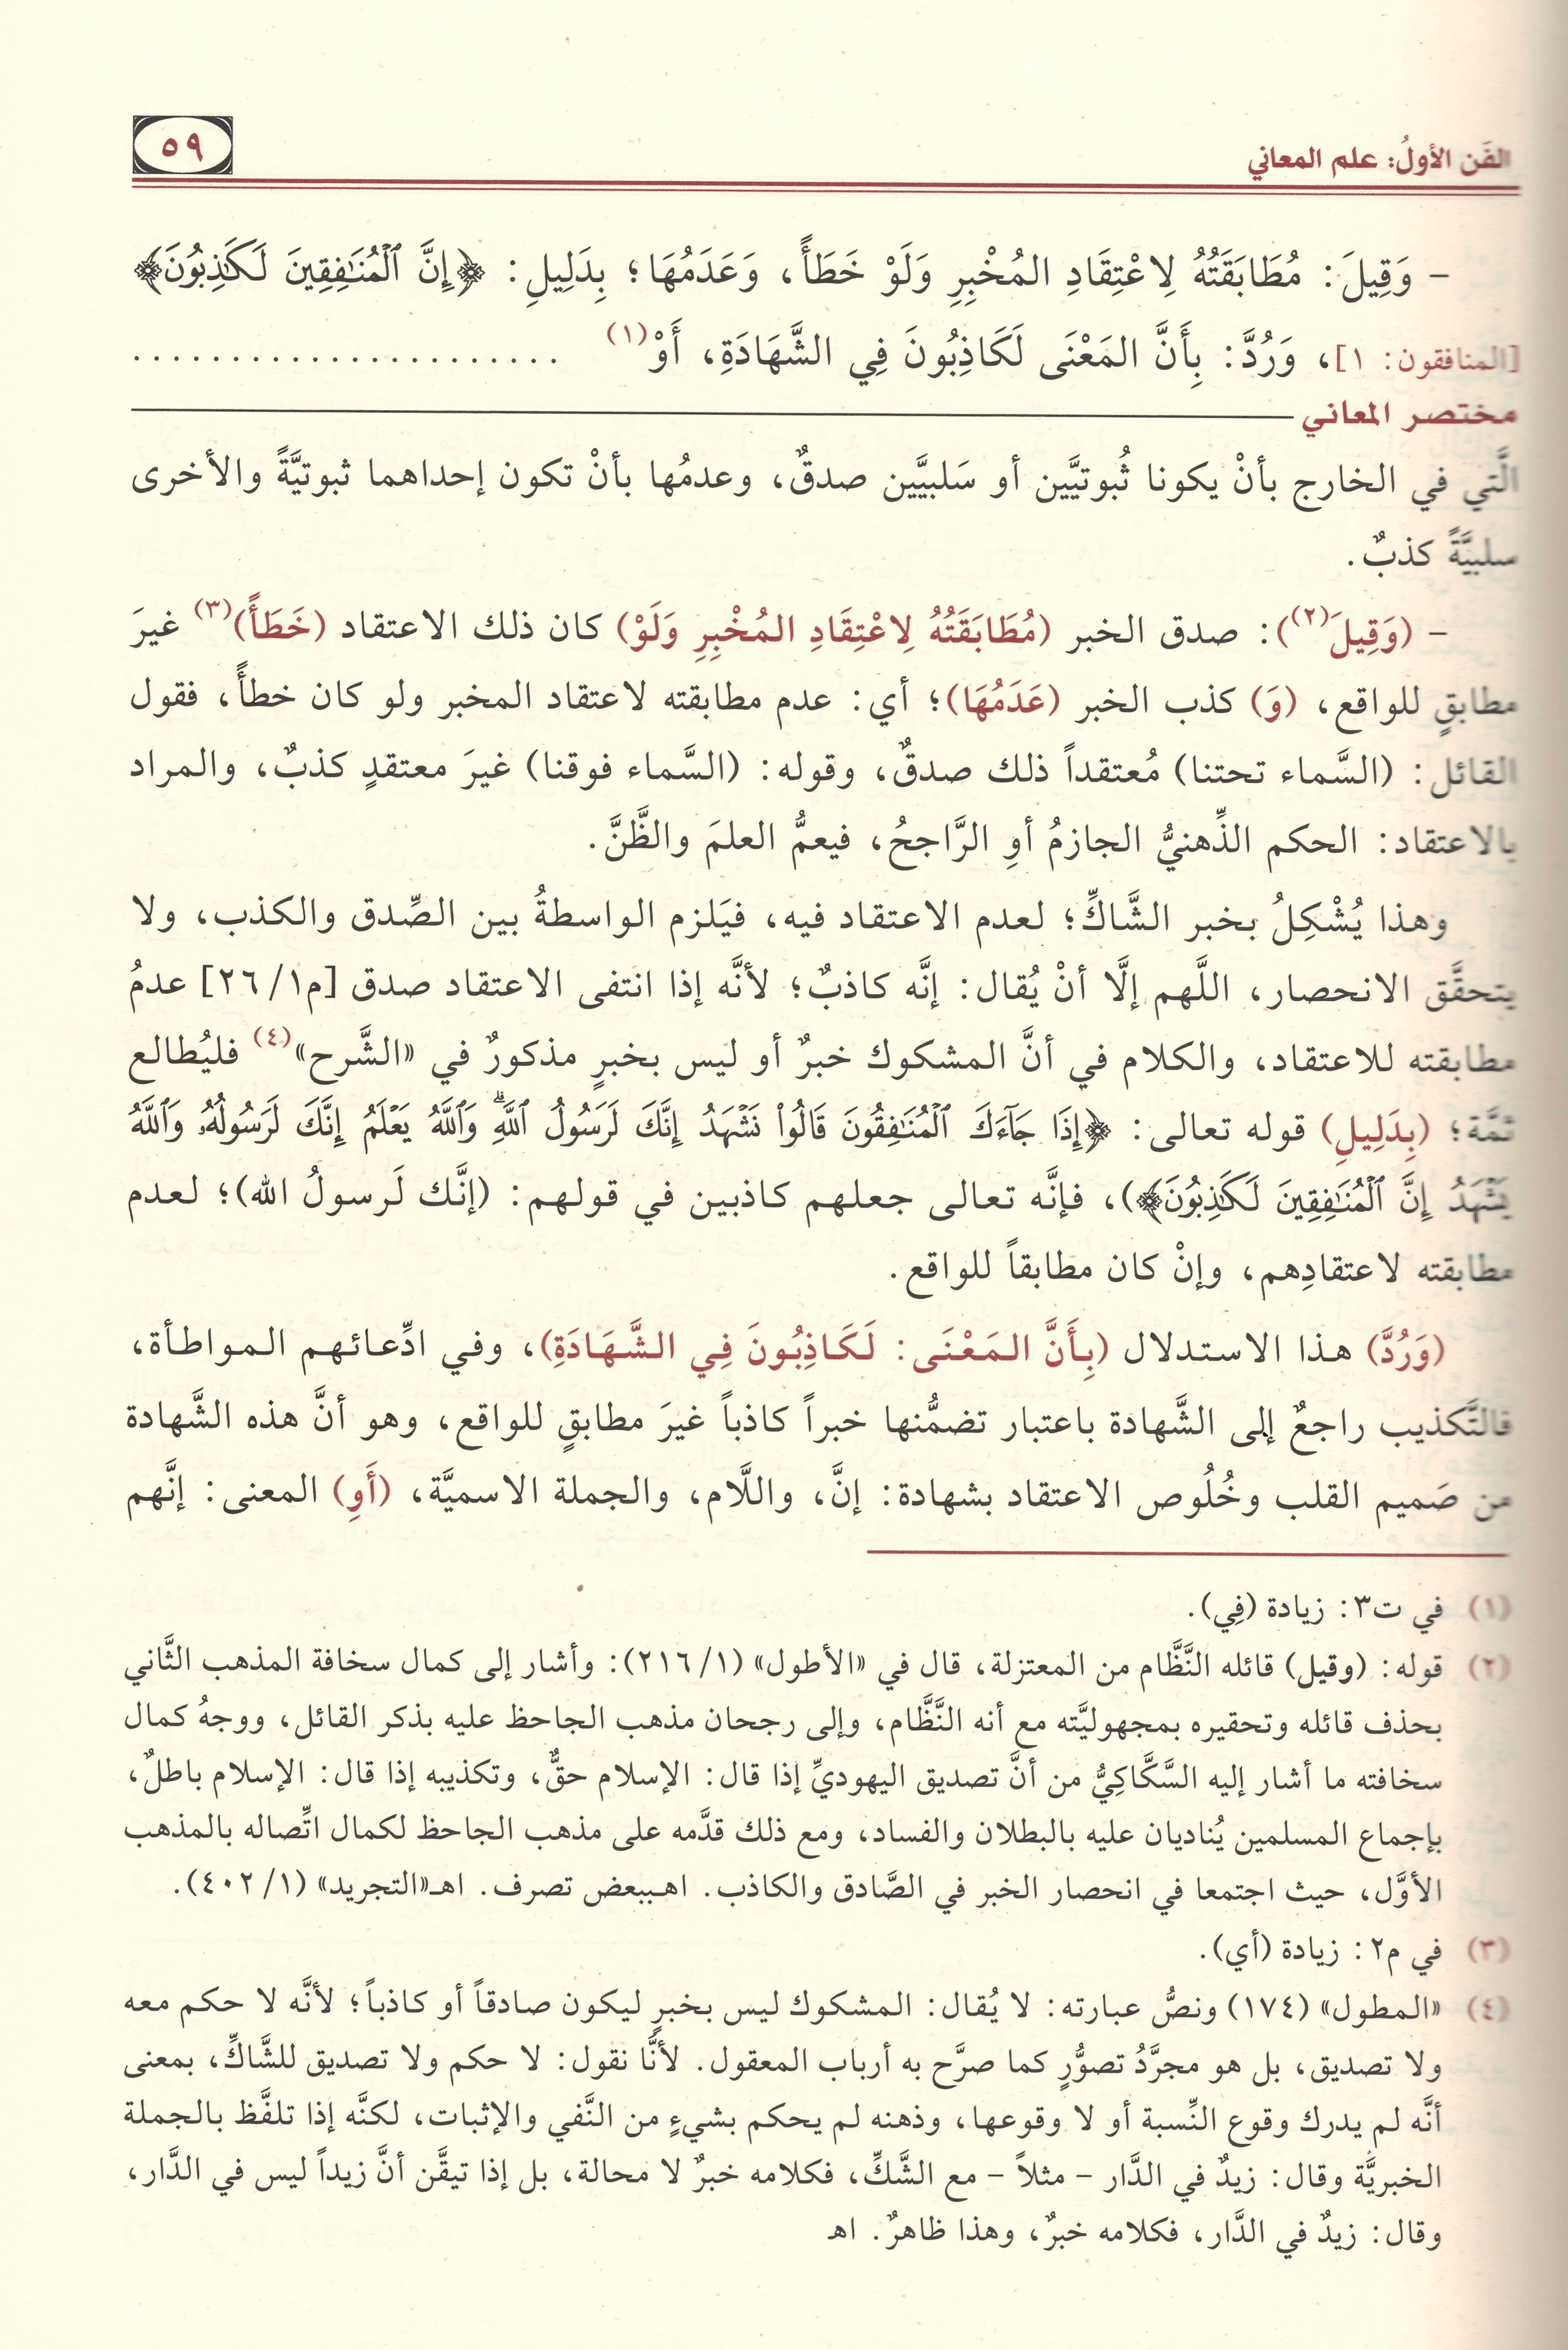 الفَن الأولُ: علم المعاني
٥٩
- وَقِيلَ: مُطَابَقَتُهُ لِاعْتِقَادِ المُخْبِرِ وَلَوْ خَطَأً، وَعَدَمُهَا؛ بِدَلِيلِ: ﴿إِنَّ ٱلْمُنَٰفِقِينَ لَكَٰذِبُونَ﴾
[المنافقون: ١]، وَرُدَّ: بِأَنَّ المَعْنَى لَكَاذِبُونَ فِي الشَّهَادَةِ، أَوْ(١) ......................
مختصر المعاني
الَّتي في الخارج بأنْ يكونا ثُبوتيَّين أو سَلبيَّين صدقٌ، وعدمُها بأنْ تكون إحداهما ثبوتيَّةً والأخرى
سلبيَّةً كذبٌ.
- (وَقِيلَ(٢)): صدق الخبر (مُطَابَقَتُهُ لِاعْتِقَادِ المُخْبِرِ وَلَوْ) كان ذلك الاعتقاد (خَطَأً)(٣) غيرَ
مطابقٍ للواقع، (وَ) كذب الخبر (عَدَمُهَا)؛ أي: عدم مطابقته لاعتقاد المخبر ولو كان خطأً، فقول
القائل: (السَّماء تحتنا) مُعتقداً ذلك صدقٌ، وقوله: (السَّماء فوقنا) غيرَ معتقدٍ كذبٌ، والمراد
بالاعتقاد: الحكم الذِّهنيُّ الجازمُ أوِ الرَّاجحُ، فيعمُّ العلمَ والظَّنَّ.
وهذا يُشْكِلُ بخبر الشَّاكِّ؛ لعدم الاعتقاد فيه، فيَلزم الواسطةُ بين الصِّدق والكذب، ولا
يتحقَّق الانحصار، اللَّهم إلَّا أنْ يُقال: إنَّه كاذبٌ؛ لأنَّه إذا انتفى الاعتقاد صدق [م١/ ٢٦] عدمُ
مطابقته للاعتقاد، والكلام في أنَّ المشكوك خبرٌ أو ليس بخبرٍ مذكورٌ في «الشَّرح»(٤) فليُطالع
ثمَّة؛ (بِدَلِيلِ) قوله تعالى: ﴿إِذَا جَآءَكَ ٱلْمُنَٰفِقُونَ قَالُوا۟ نَشْهَدُ إِنَّكَ لَرَسُولُ ٱللَّهِ ۗ وَٱللَّهُ يَعْلَمُ إِنَّكَ لَرَسُولُهُۥ وَٱللَّهُ
يَشْهَدُ إِنَّ ٱلْمُنَٰفِقِينَ لَكَٰذِبُونَ﴾)، فإنَّه تعالى جعلهم كاذبين في قولهم: (إنَّك لَرسولُ الله)؛ لعدم
مطابقته لاعتقادِهم، وإنْ كان مطابقاً للواقع.
(وَرُدَّ) هذا الاستدلال (بِأَنَّ المَعْنَى: لَكَاذِبُونَ فِي الشَّهَادَةِ)، وفي ادِّعائهم المواطأة،
فالتَّكذيب راجعٌ إلى الشَّهادة باعتبار تضمُّنها خبراً كاذباً غيرَ مطابقٍ للواقع، وهو أنَّ هذه الشَّهادة
من صَميم القلب وخُلُوص الاعتقاد بشهادة: إنَّ، واللَّام، والجملة الاسميَّة، (أَوِ) المعنى: إنَّهم
(١) في ت٣: زيادة (فِي).
(٢) قوله: (وقيل) قائله النَّظَّام من المعتزلة، قال في «الأطول» (١/ ٢١٦): وأشار إلى كمال سخافة المذهب الثَّاني
بحذف قائله وتحقيره بمجهوليَّته مع أنه النَّظَّام، وإلى رجحان مذهب الجاحظ عليه بذكر القائل، ووجهُ كمال
سخافته ما أشار إليه السَّكَّاكِيُّ من أنَّ تصديق اليهوديِّ إذا قال: الإسلام حقٌّ، وتكذيبه إذا قال: الإسلام باطلٌ،
بإجماع المسلمين يُناديان عليه بالبطلان والفساد، ومع ذلك قدَّمه على مذهب الجاحظ لكمال اتِّصاله بالمذهب
الأوَّل، حيث اجتمعا في انحصار الخبر في الصَّادق والكاذب. اهـببعض تصرف. اهـ«التجريد» (١/ ٤٠٢).
(٣) في م٢: زيادة (أي).
(٤) «المطول» (١٧٤) ونصُّ عبارته: لا يُقال: المشكوك ليس بخبرٍ ليكون صادقاً أو كاذباً؛ لأنَّه لا حكم معه
ولا تصديق، بل هو مجرَّدُ تصوُّرٍ كما صرَّح به أرباب المعقول. لأنَّا نقول: لا حكم ولا تصديق للشَّاكِّ، بمعنى
أنَّه لم يدرك وقوع النِّسبة أو لا وقوعها، وذهنه لم يحكم بشيءٍ من النَّفي والإثبات، لكنَّه إذا تلفَّظ بالجملة
الخبريَّة وقال: زيدٌ في الدَّار - مثلاً - مع الشَّكِّ، فكلامه خبرٌ لا محالة، بل إذا تيقَّن أنَّ زيداً ليس في الدَّار،
وقال: زيدٌ في الدَّار، فكلامه خبرٌ، وهذا ظاهرٌ. اهـ